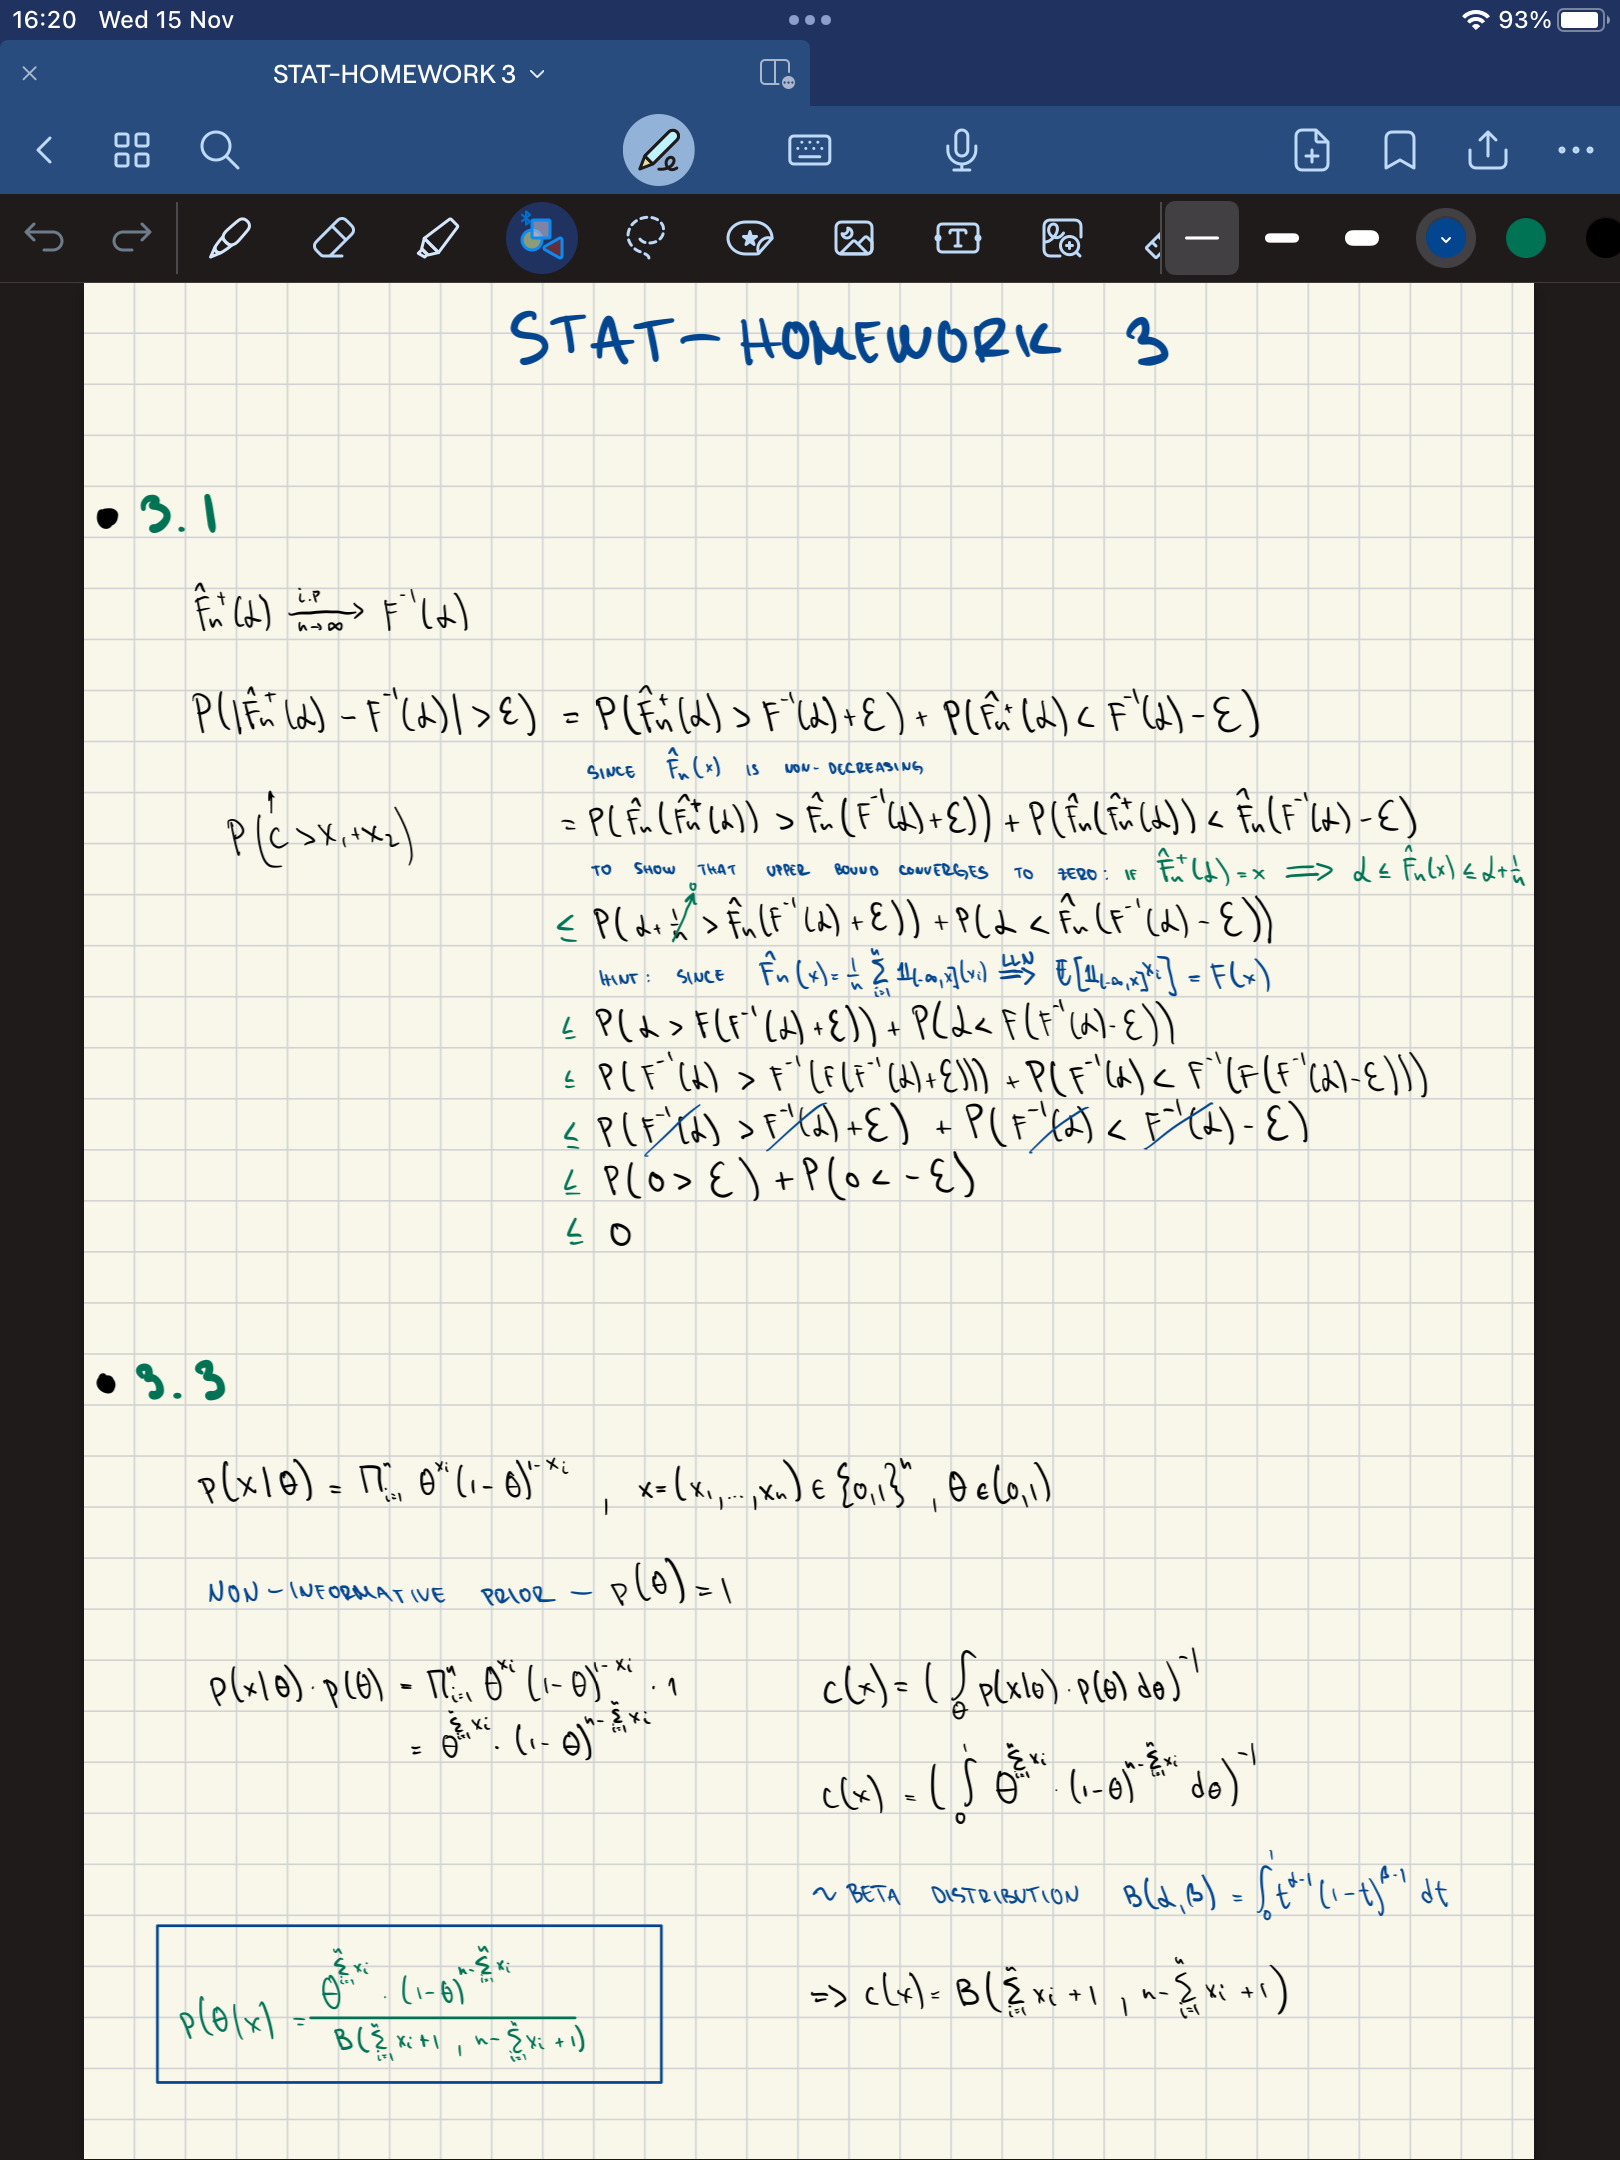 16:20 Wed 15 Nov 93%
STAT-HOMEWORK 3
STAT-HOMEWORK 3
• 3.1
F̂ₙ⁺(α) →(i.p, n→∞) F⁻¹(α)
P(|F̂ₙ⁺(α) - F⁻¹(α)| > ε) = P(F̂ₙ⁺(α) > F⁻¹(α)+ε) + P(F̂ₙ⁺(α) < F⁻¹(α) - ε)
SINCE F̂ₙ(x) IS NON-DECREASING
P(c > x₁+x₂)
↑
= P(F̂ₙ(F̂ₙ⁺(α)) > F̂ₙ(F⁻¹(α)+ε)) + P(F̂ₙ(F̂ₙ⁺(α)) < F̂ₙ(F⁻¹(α) - ε)
TO SHOW THAT UPPER BOUND CONVERGES TO ZERO: IF F̂ₙ⁺(α) = x ⟹ α ≤ F̂ₙ(x) ≤ α + 1/n
≤ P(α + 1/n > F̂ₙ(F⁻¹(α) + ε)) + P(α < F̂ₙ(F⁻¹(α) - ε))
0
HINT: SINCE F̂ₙ(x) = 1/n Σᵢ₌₁ⁿ 𝟙(-∞,x](xᵢ) ⟹(LLN) E[𝟙(-∞,x]xᵢ] = F(x)
≤ P(α > F(F⁻¹(α)+ε)) + P(α < F(F⁻¹(α)-ε))
≤ P(F⁻¹(α) > F⁻¹(F(F⁻¹(α)+ε))) + P(F⁻¹(α) < F⁻¹(F(F⁻¹(α)-ε)))
≤ P(F⁻¹(α) > F⁻¹(α)+ε) + P(F⁻¹(α) < F⁻¹(α) - ε)
≤ P(0 > ε) + P(0 < -ε)
≤ 0
• 3.3
p(x|θ) = Πᵢ₌₁ⁿ θ^xᵢ (1-θ)^(1-xᵢ) , x=(x₁,...,xₙ) ∈ {0,1}ⁿ, θ∈(0,1)
NON-INFORMATIVE PRIOR - p(θ) = 1
p(x|θ) · p(θ) = Πᵢ₌₁ⁿ θ^xᵢ (1-θ)^(1-xᵢ) · 1
= θ^(Σᵢ₌₁ⁿ xᵢ) · (1-θ)^(n-Σᵢ₌₁ⁿ xᵢ)
c(x) = (∫_θ p(x|θ) · p(θ) dθ)⁻¹
c(x) = (∫₀¹ θ^(Σᵢ₌₁ⁿ xᵢ) · (1-θ)^(n-Σᵢ₌₁ⁿ xᵢ) dθ)⁻¹
~ BETA DISTRIBUTION B(α,β) = ∫₀¹ t^(α-1) (1-t)^(β-1) dt
=> c(x) = B(Σᵢ₌₁ⁿ xᵢ + 1 , n - Σᵢ₌₁ⁿ xᵢ + 1)
p(θ|x) = θ^(Σᵢ₌₁ⁿ xᵢ) · (1-θ)^(n-Σᵢ₌₁ⁿ xᵢ) / B(Σᵢ₌₁ⁿ xᵢ+1 , n-Σᵢ₌₁ⁿ xᵢ+1)